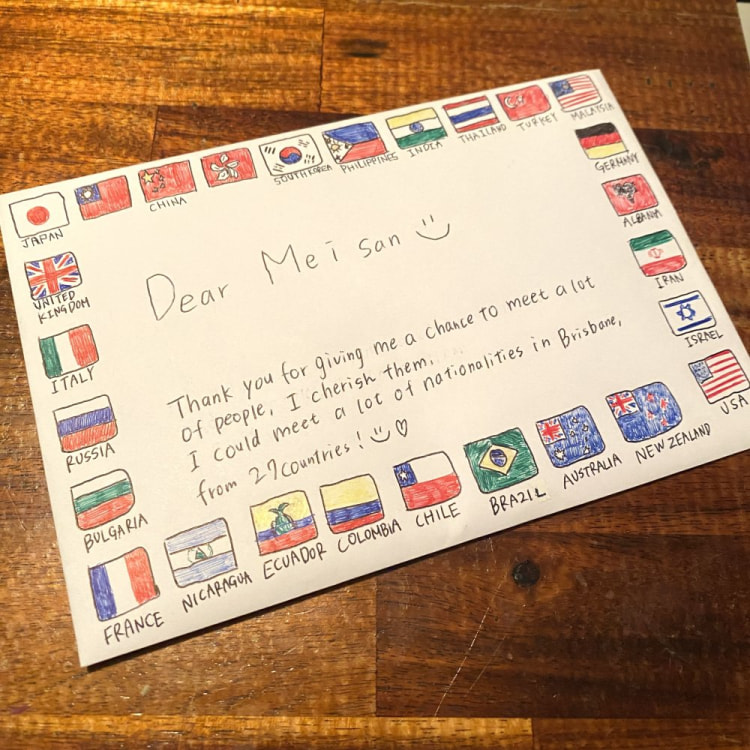 JAPAN
CHINA
SOUTH KOREA
PHILIPPINES
INDIA
THAILAND
TURKEY
MALAYSIA
GERMANY
ALBANIA
IRAN
ISRAEL
USA
UNITED
KINGDOM
ITALY
RUSSIA
BULGARIA
Dear Mei san
Thank you for giving me a chance to meet a lot
of people, I cherish them.
I could meet a lot of nationalities in Brisbane,
from 27 countries!
FRANCE
NICARAGUA
ECUADOR
COLOMBIA
CHILE
BRAZIL
AUSTRALIA
NEW ZEALAND